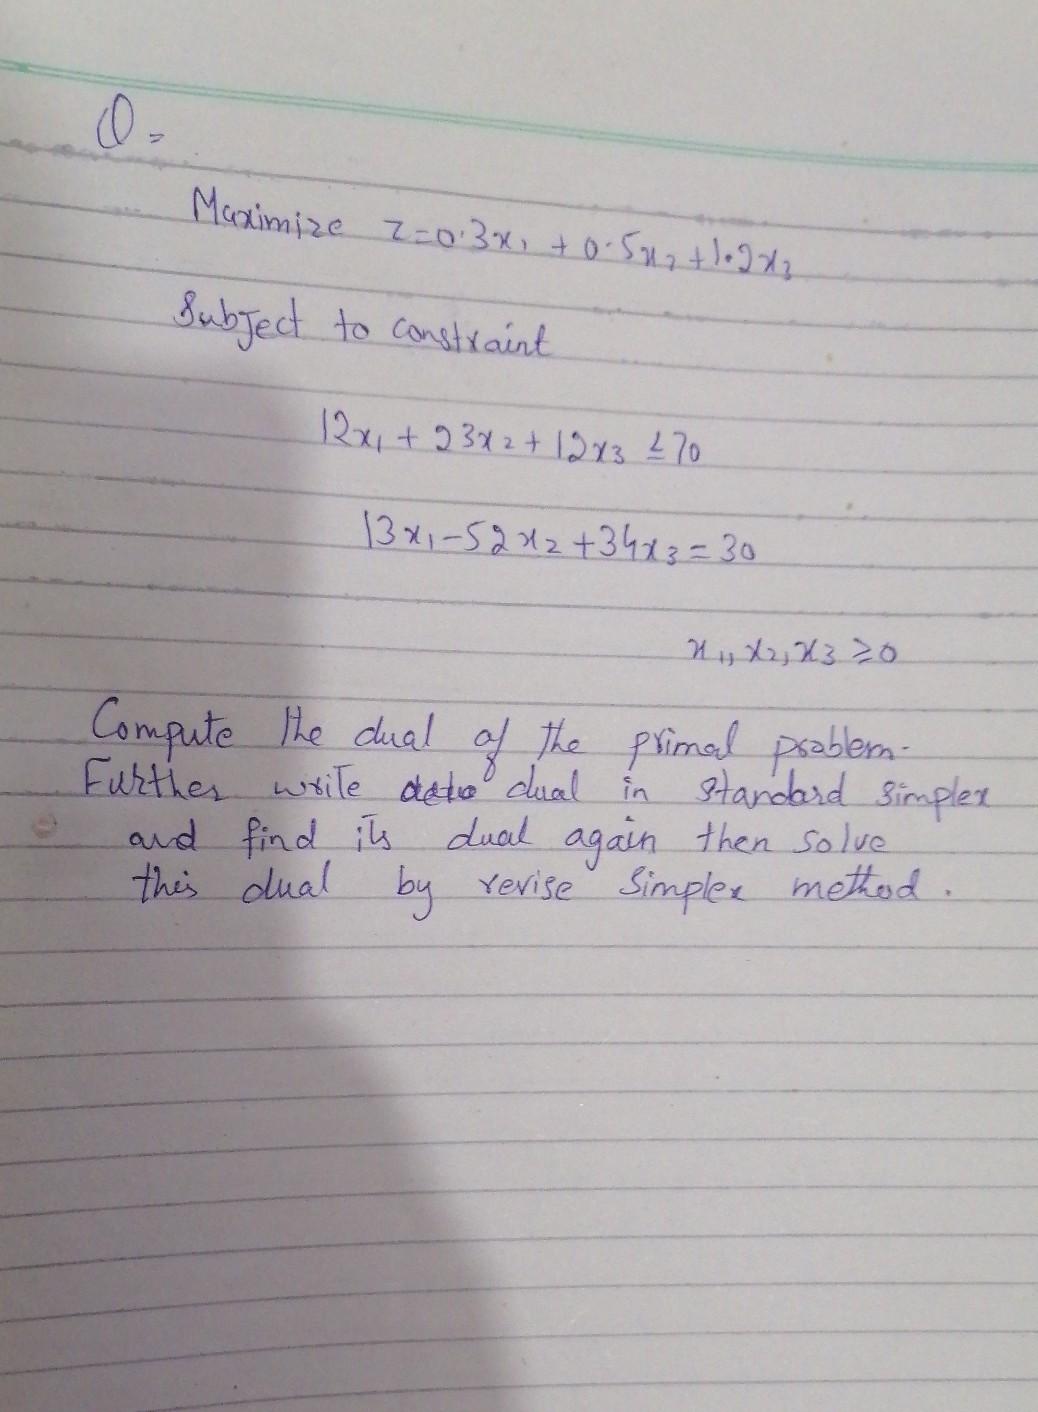 Q=
Maximize z=0.3x₁ + 0.5x₂ + 1.2x₃
Subject to constraint
12x₁ + 23x₂ + 12x₃ ≤ 70
13x₁ - 52x₂ + 34x₃ = 30
x₁, x₂, x₃ ≥ 0
Compute the dual of the primal problem.
Further write dual in standard simplex
and find its dual again then solve
this dual by revise simplex method.